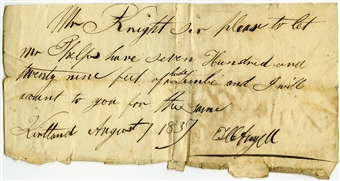 Mr Knight sir please to let
mr Phelps have seven Hundred and
twenty nine feet of and I will
acount to you for the same
Kirtland August 1 1837